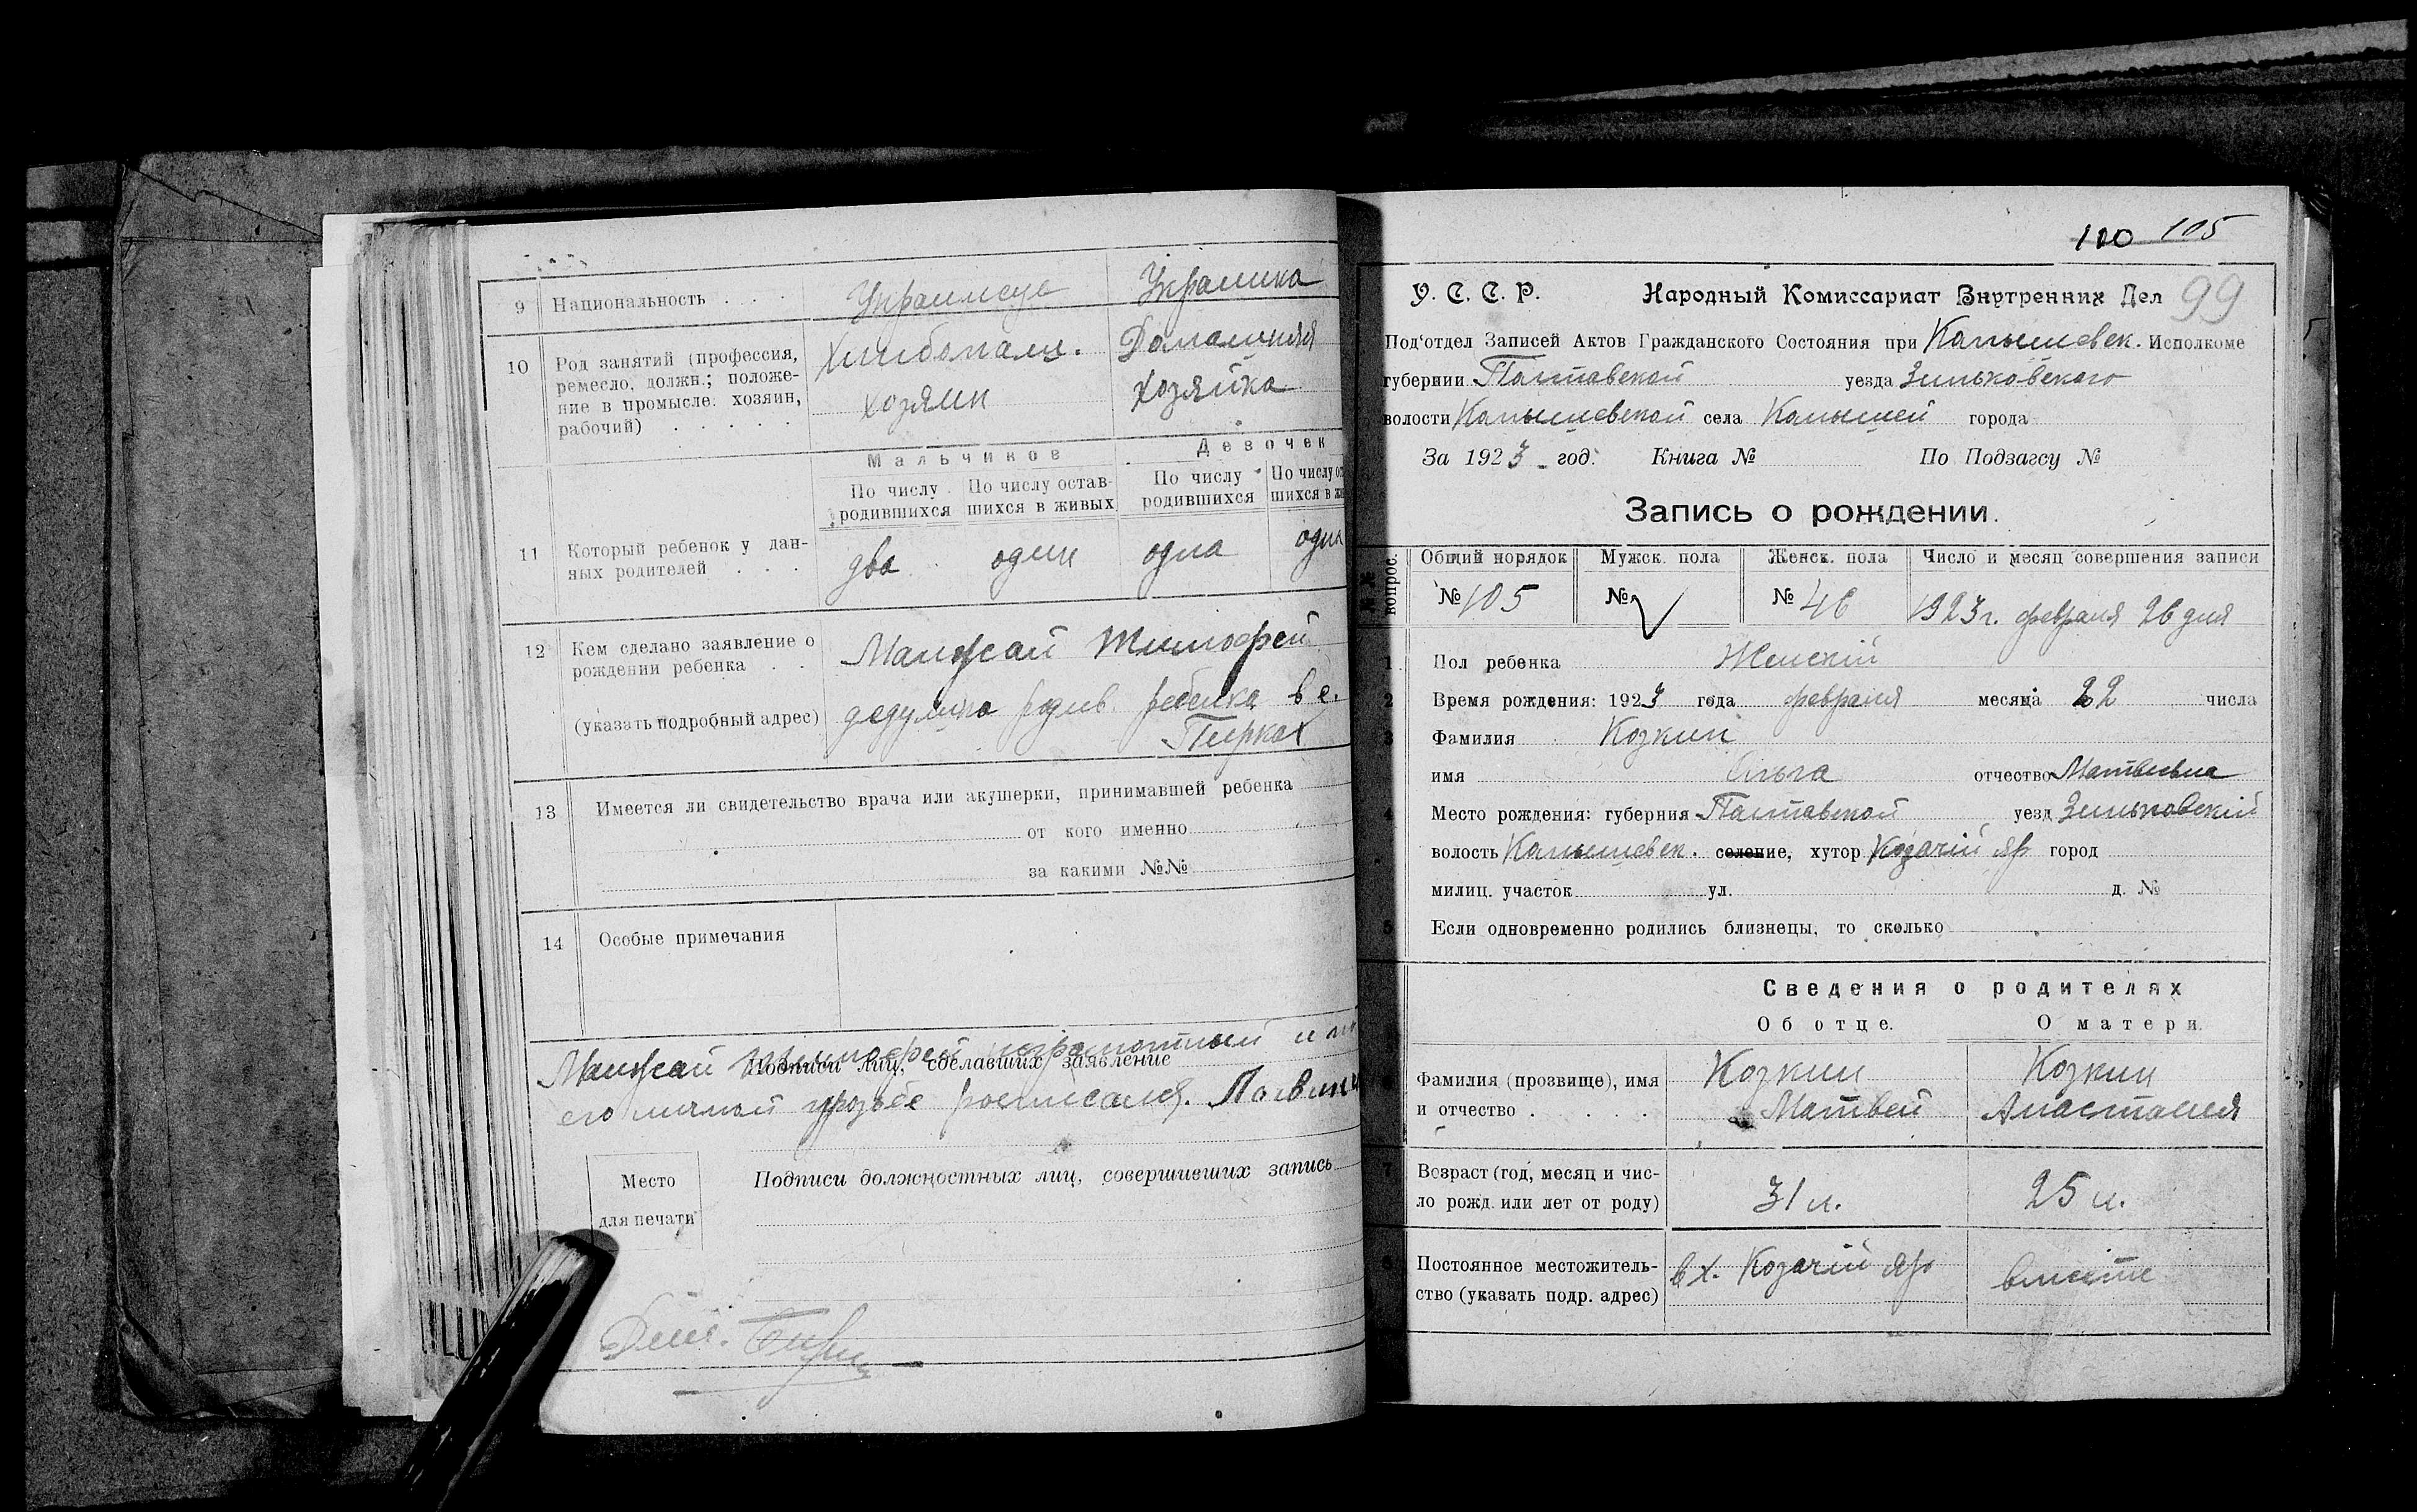 9 Национальность . . . Украинец Украинка
10 Род занятий (профессия, ремесло, должн.; положе-
ние в промысле: хозяин, рабочий) . . . . . Хлибопаш. хозяин Домашняя Хозяйка
Мальчиков Девочек
По числу родившихся По числу остав-
шихся в живых По числу родившихся По числу ос
шихся в жи
11 Который ребенок у дан-
ных родителей . . . два один одна одна
12 Кем сделано заявление о
рождении ребенка . . Манжай Тимофей
(указать подробный адрес) дедушка родив. ребенка в с.
Пирках
13 Имеется ли свидетельство врача или акушерки, принимавшей ребенка
от кого именно
за какими №№
14 Особые примечания
Манжай Тимофей неграмотный и по
Подписи лиц, сделавших заявление
его личной прозьбе росписался.
Место
для печати
Подписи должностных лиц, совершивших запись
100 105
У. С. С. Р. Народный Комиссариат Внутренних Дел 99
Под'отдел Записей Актов Гражданского Состояния при Капышевск. Исполкоме
губернии Полтавской уезда Зиньковского
волости Капышевской села Капышей города
За 1923 год. Книга № По Подзагсу №
Запись о рождении.
№№ вопрос. Общий порядок Мужск. пола Женск. пола Число и месяц совершения записи
№ 105 № № 46 1923 г. февраля 26 дня
1 Пол ребенка Женскій
2 Время рождения: 1923 года февраля месяца 22 числа
3 Фамилия Козкин
имя Ольга отчество Матвеевна
4 Место рождения: губерния Полтавской уезд Зиньковскій
волость Капышевск. селение, хутор Козачій Яр город
милиц. участок ул. д. №
5 Если одновременно родились близнецы, то сколько
Сведения о родителях
Об отце. О матери.
6 Фамилия (прозвище), имя Козкин Козкин
и отчество . . . . Матвей Анастасия
7 Возраст (год, месяц и чис-
ло рожд. или лет от роду) 31 л. 25 л.
8 Постоянное местожитель-
ство (указать подр. адрес) в х. Козачій Яр вместе